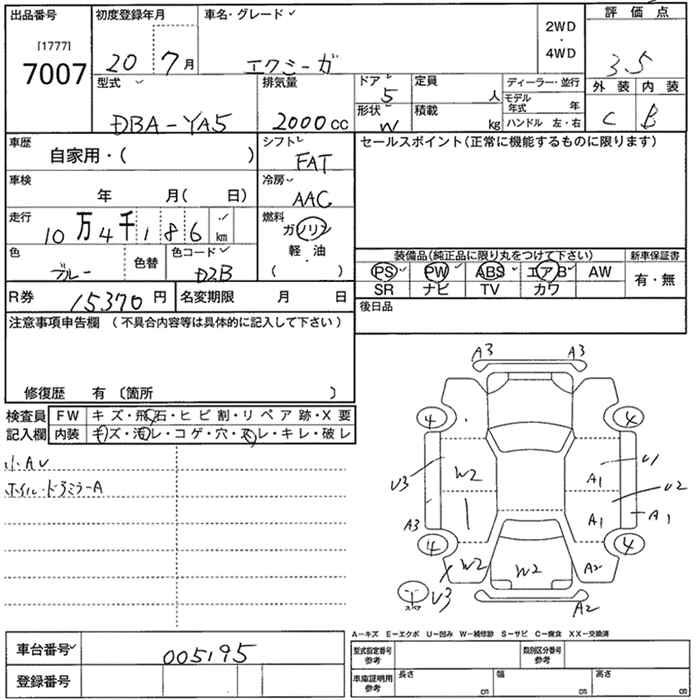 出品番号 初度登録年月 車名・グレード 2WD・4WD 評価点
[1777]
7007
20 7月 エクシーガ 3.5
型式 排気量 ドア 5 定員 人 ディーラー・並行 外装 内装
モデル年式 年
DBA-YA5 2000cc 形状 W 積載 kg ハンドル 左・右 C B
車歴 自家用・( ) シフト FAT セールスポイント(正常に機能するものに限ります)
車検 年 月( 日) 冷房 AAC
走行 10万4千186 km 燃料 ガソリン 軽・油 ( )
色 ブルー 色替 色コード DZB
装備品(純正品に限り丸をつけて下さい) 新車保証書
PS PW ABS エアB AW 有・無
SR ナビ TV カワ
R券 15,370円 名変期限 月 日 後日品
注意事項申告欄 (不具合内容等は具体的に記入して下さい)
修復歴 有 〔箇所 〕
検査員 FW キズ・飛石・ヒビ割・リペア跡・X要
記入欄 内装 キズ・汚レ・コゲ・穴・スレ・キレ・破レ
小AU
ホイル・ドアミラーA
A3 A3
4 4
U3 W2 A1 U1
U2
A3 A1 A1
4 4
W2 W2 A2
U3 A2
スペア
A-キズ E-エクボ U-凹み W-補修跡 S-サビ C-腐食 XX-交換済
車台番号 005195 型式指定番号 参考 類別区分番号 参考
登録番号 車庫証明用 参考 長さ cm 幅 cm 高さ cm